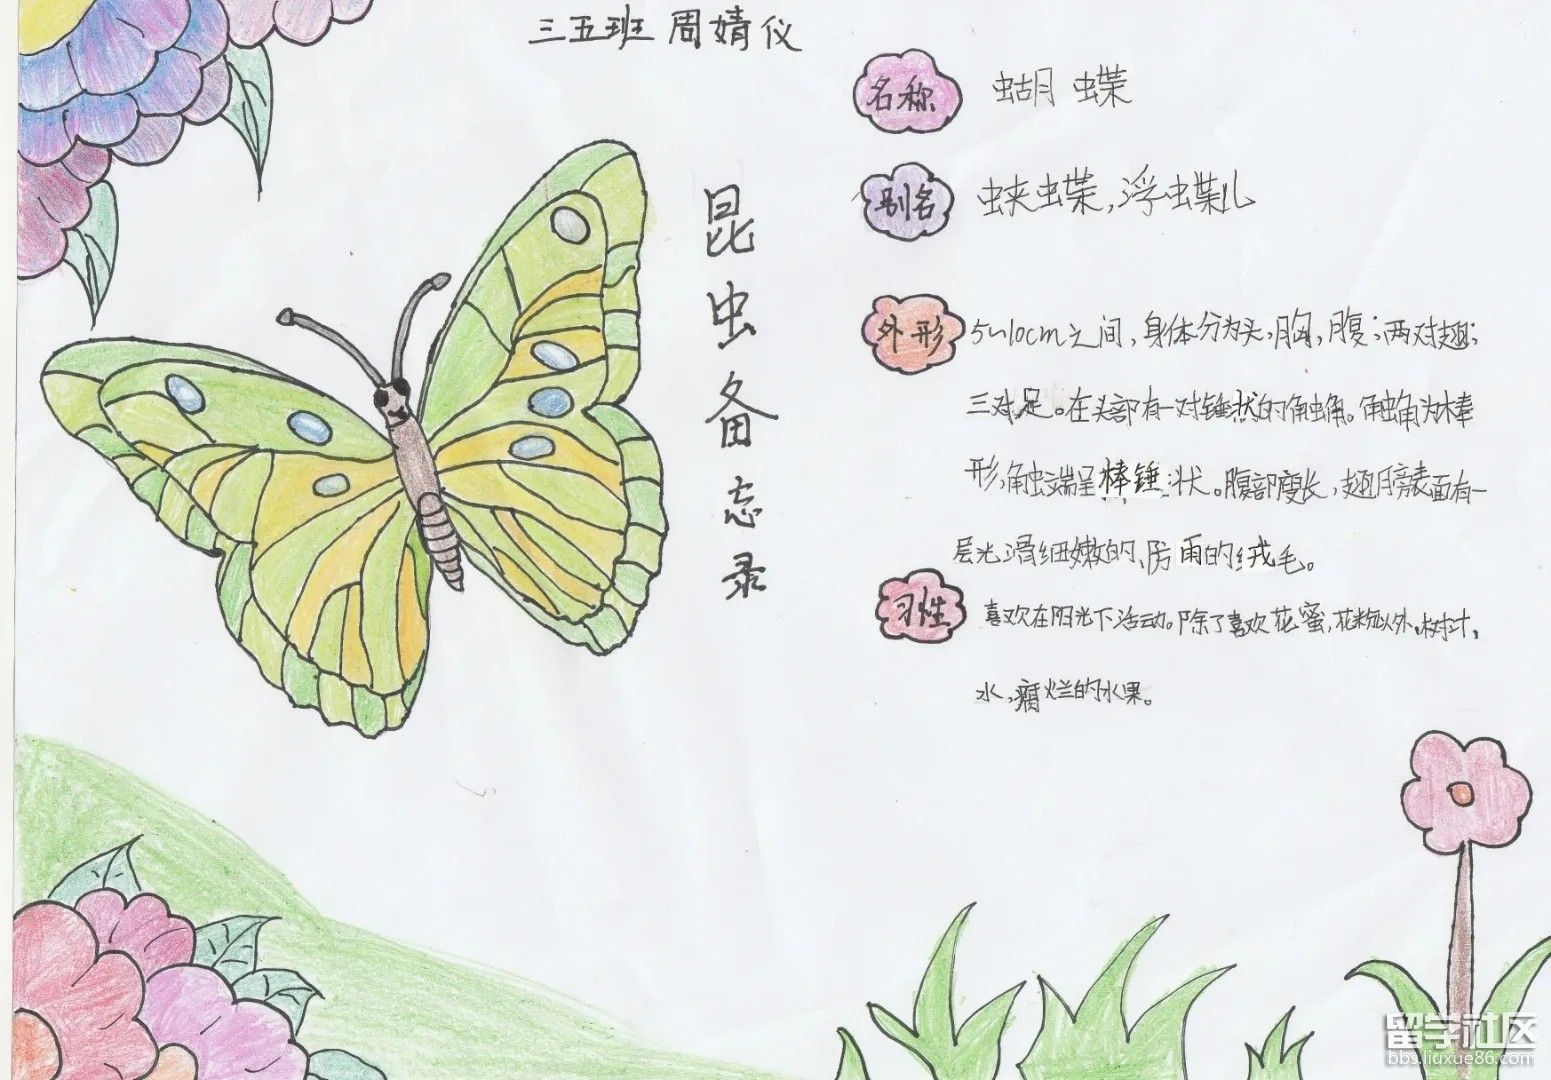 三五班 周婧仪
昆虫备忘录
名称 蝴蝶
别名 蛱蝶,浮蝶儿
外形 5~10cm之间,身体分为头,胸,腹;两对翅;
三对足。在头部有一对锤状的触角。触角为棒
形,触端呈棒锤状。腹部瘦长,翅膀表面有一
层光滑细嫩的、防雨的绒毛。
习性 喜欢在阳光下活动。除了喜欢花蜜,花粉以外,树汁,
水,腐烂的水果。
留学社区
bbs.liuxue86.com